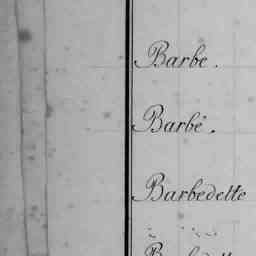 Barbe.
Barbé.
Barbedette